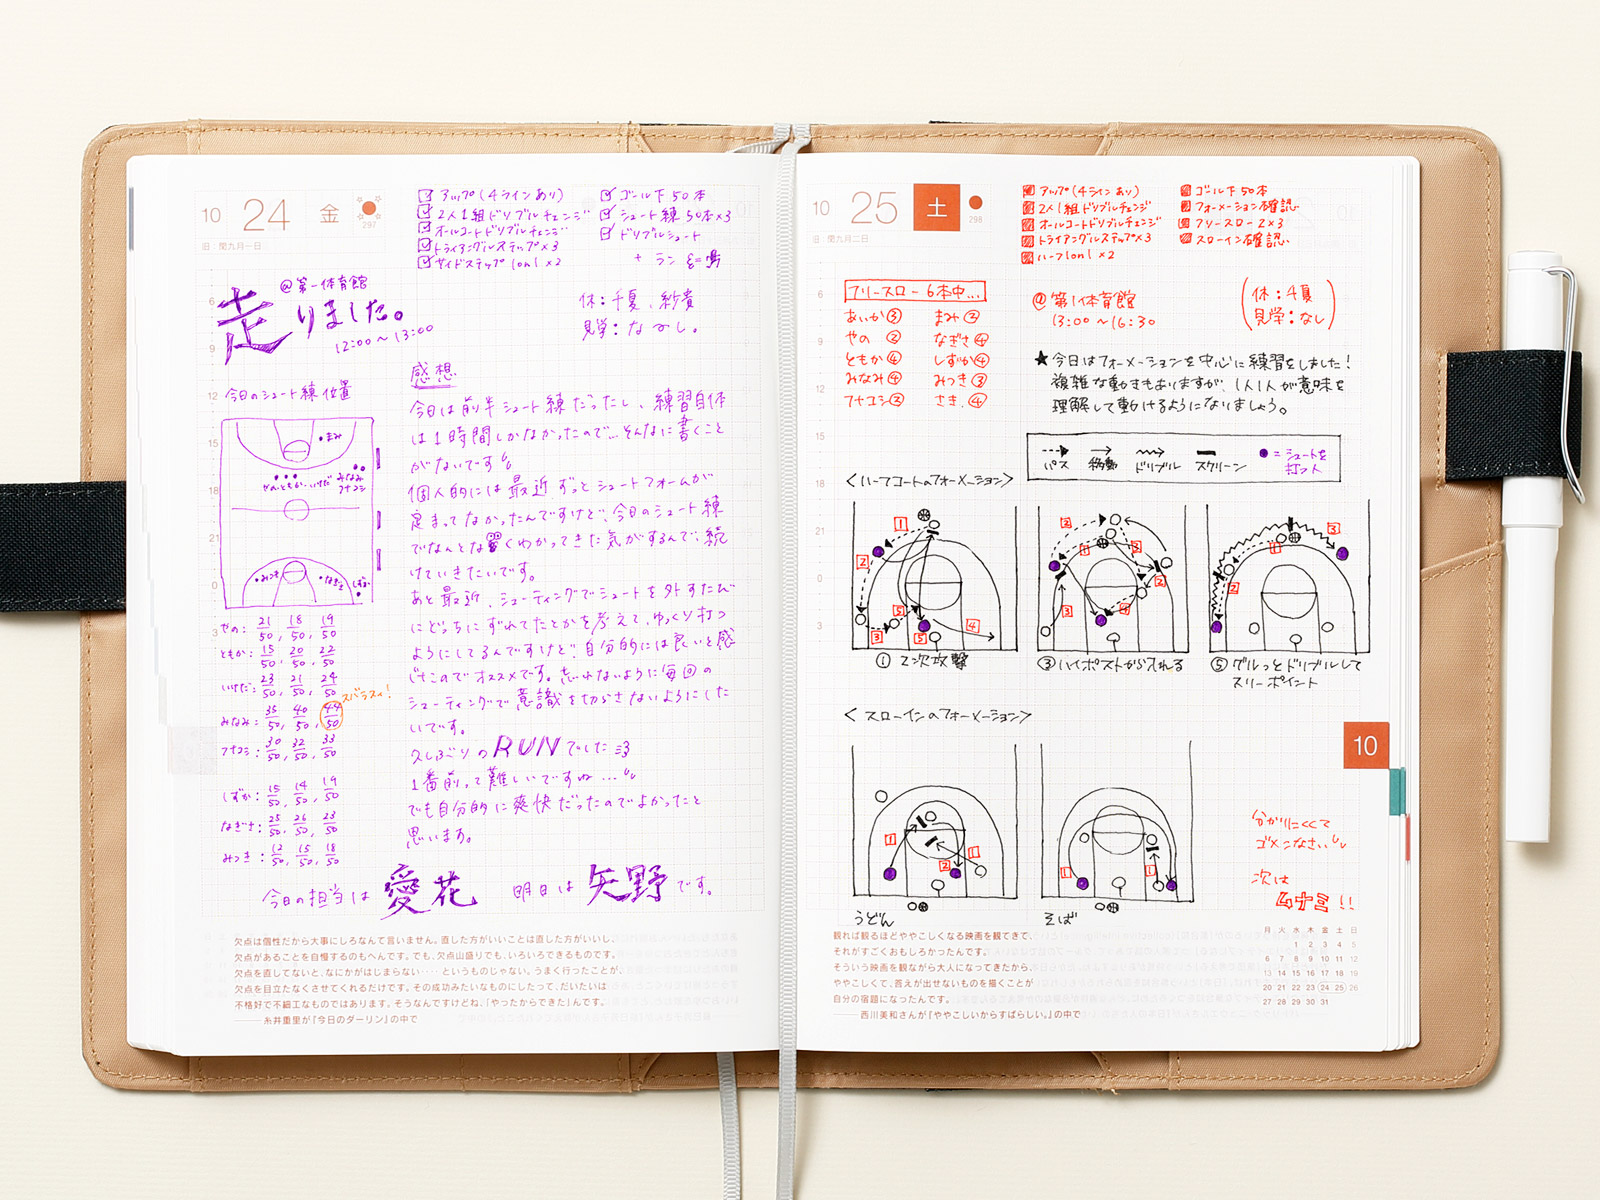 10 24 金
297
旧：閏九月一日
☑アップ(4ラインあり)
☑2人1組ドリブルチェンジ
☑オールコートドリブルチェンジ
☑トライアングルステップ×3
☑サイドステップ1on1×2
☑ゴール下50本
☑シュート練50本×3
☑ドリブルシュート
+ ラン
@第一体育館
走りました。
12:00～13:00
休：千夏、紗貴
見学：なし。
今日のシュート練位置
まみ
やの・ともか・いけだ
みなみ
フナコシ
みつき
なぎさ
しずか
やの： 21/50, 18/50, 19/50
ともか： 15/50, 20/50, 22/50
いけだ： 23/50, 21/50, 24/50
スバラスィ！
みなみ： 35/50, 40/50, 44/50
フナコシ： 30/50, 32/50, 33/50
しずか： 15/50, 14/50, 19/50
なぎさ： 25/50, 26/50, 23/50
みつき： 12/50, 15/50, 18/50
感想
今日は前半シュート練だったし、練習自体
は1時間しかなかったので…そんなに書くこと
がないです
個人的には最近ずっとシュートフォームが
定まってなかったんですけど、今日のシュート練
でなんとなくわかってきた気がするんで、続
けていきたいです。
あと最近、シューティングでシュートを外すたび
にどっちにずれてたとかを考えて、ゆっくり打つ
ようにしてるんですけど、自分的には良いと感
じたのでオススメです。忘れないように毎回の
シューティングで意識を切らさないようにした
いです。
久しぶりのRUNでした
1番前って難しいですね…
でも自分的に爽快だったのでよかったと
思います。
今日の担当は 愛花 明日は 矢野 です。
欠点は個性だから大事にしろなんて言いません。直した方がいいことは直した方がいいし、
欠点があることを自慢するのもへんです。でも、欠点山盛りでも、いろいろできるものです。
欠点を直してないと、なにかがはじまらない‥‥というものじゃない。うまく行ったことが、
欠点を目立たなくさせてくれるだけです。その成功みたいなものにしたって、だいたいは
不格好で不細工なものではあります。そうなんですけどね、「やったからできた」んです。
――糸井重里が『今日のダーリン』の中で
10 25 土
298
旧：閏九月二日
アップ(4ラインあり)
2人1組ドリブルチェンジ
オールコートドリブルチェンジ
トライアングルステップ×3
ハーフ1on1×2
ゴール下50本
フォーメーション確認
フリースロー2×3
スローイン確認
フリースロー6本中…
あいか③ まみ②
やの② なぎさ④
ともか④ しずか④
みなみ④ みつき③
フナコシ② さき.④
@第1体育館
13:00～16:30
(休：千夏
見学：なし)
★今日はフォーメーションを中心に練習をしました！
複雑な動きもありますが、1人1人が意味を
理解して動けるようになりましょう。
パス 移動 ドリブル スクリーン ●=シュートを
打つ人
＜ハーフコートのフォーメーション＞
1
2
3
4
5
5
① 2次攻撃
2
1
3
2
3
4
③ハイポストから入れる
3
1
2
⑤グルっとドリブルして
スリーポイント
＜スローインのフォーメーション＞
1
1
2
うどん
1
1
そば
10
分かりにくくて
ゴメンなさい
次は
ムナミ!!
観れば観るほどややこしくなる映画を観てきて、
それがすごくおもしろかったんです。
そういう映画を観ながら大人になってきたから、
ややこしくて、答えが出せないものを描くことが
自分の宿題になったんです。
――西川美和さんが『ややこしいからすばらしい。』の中で
月 火 水 木 金 土 日
1 2 3 4 5
6 7 8 9 10 11 12
13 14 15 16 17 18 19
20 21 22 23 24 25 26
27 28 29 30 31